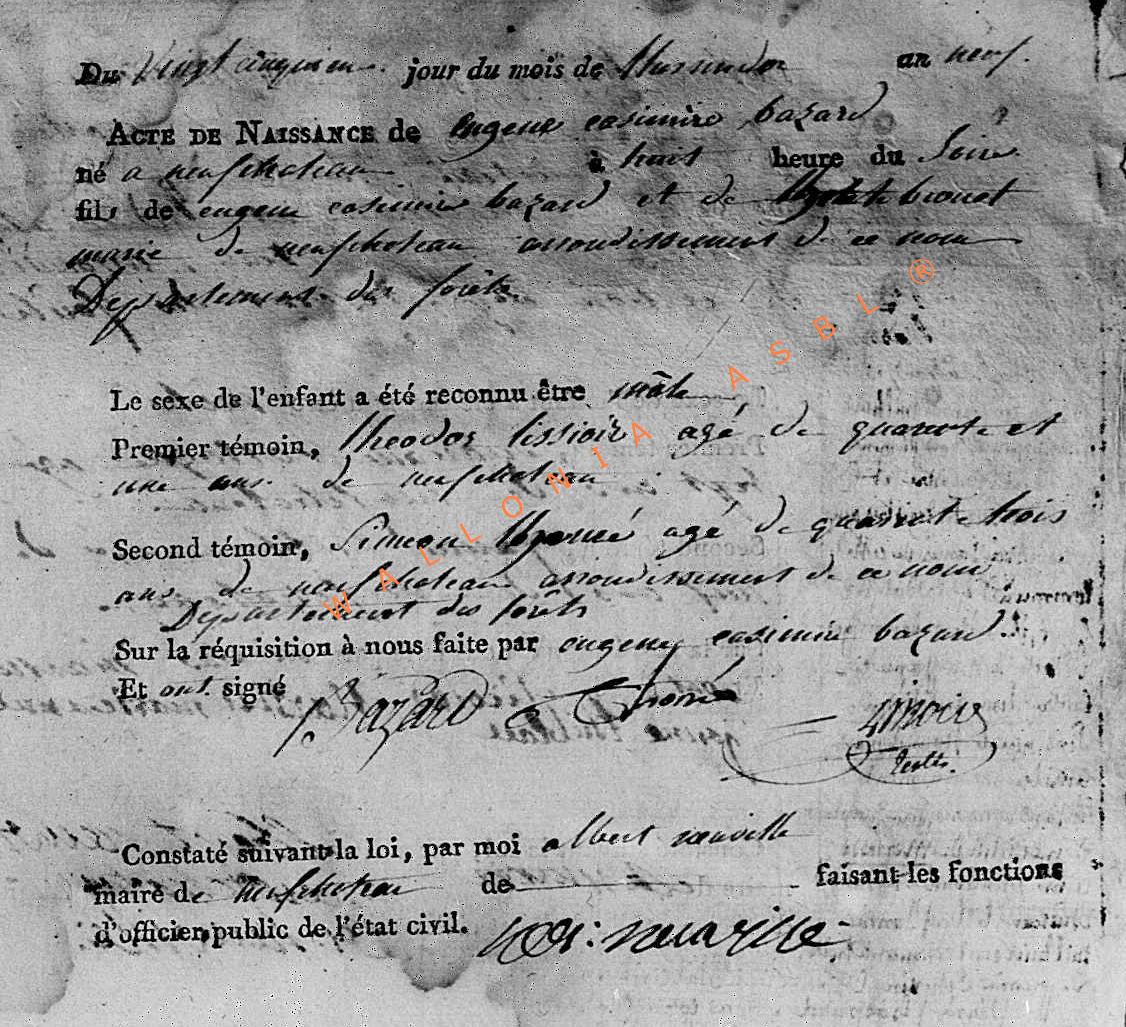 Du Vingt cinquieme jour du mois de Messidor an neuf.
ACTE DE NAISSANCE de eugene casimire bazard
né a neufchateau à huit heure du Soire
fils de eugene casimire bazard et de brouet
marie de neufchateau arrondissement de ce nom
Departement des forêts
Le sexe de l'enfant a été reconnu être mâle
Premier témoin, theodor agé de quarente et
une ans de neufchateau
Second témoin, Simeon agé de quarente trois
ans de neufchateau arrondissement de ce nom
Departement des forêts
Sur la réquisition à nous faite par eugene casimire bazard.
Et ont signé Bazard
Constaté suivant la loi, par moi albert neuville
maire de neufchateau de faisant les fonctions
d'officier public de l'état civil. neuville
WALLONIA ASBL ®